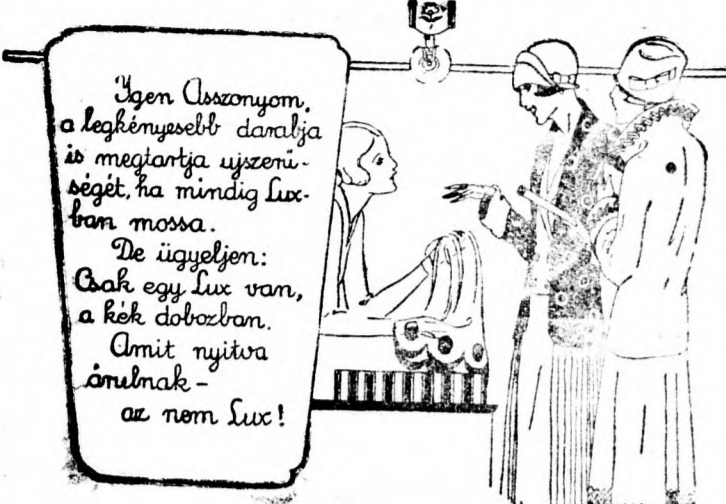 Igen Asszonyom,
a legkényesebb darabja
is megtartja ujszerü-
ségét, ha mindig Lux-
ban mossa.
De ügyeljen:
Csak egy Lux van,
a kék dobozban.
Amit nyitva
árulnak -
az nem Lux!